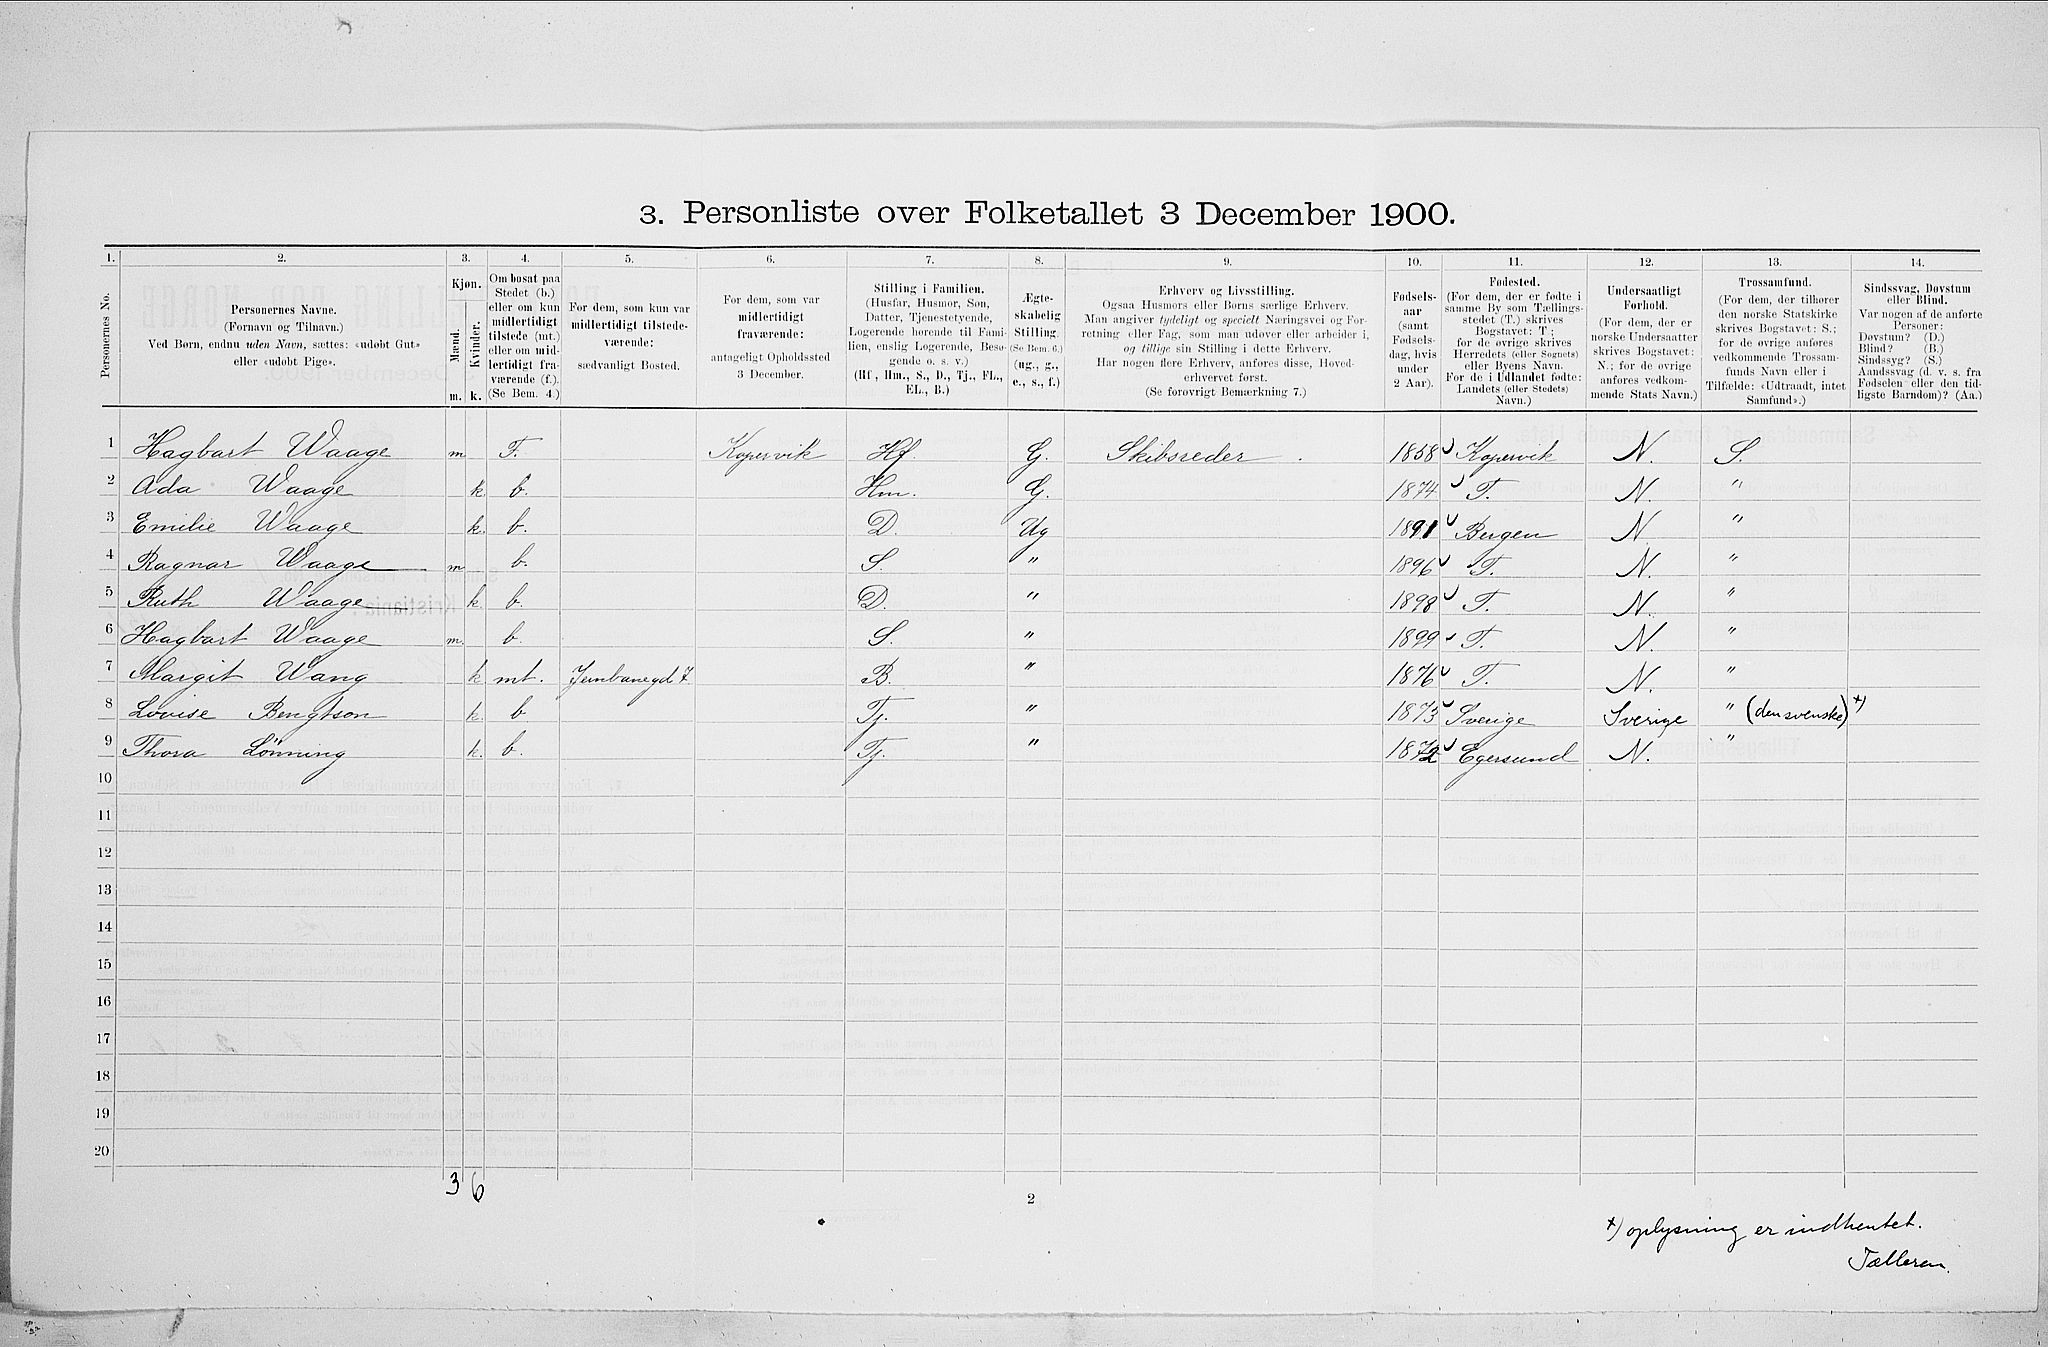 3. Personliste over Folketallet 3 December 1900.
1. 2. 3. 4. 5. 6. 7. 8. 9. 10. 11. 12. 13. 14.
Personernes No.
Personernes Navne.
(Fornavn og Tilnavn.)
Ved Børn, endnu uden Navn, sættes: «udøbt Gut»
eller «udøbt Pige».
Kjøn.
Mænd.
Kvinder.
m. k.
Om bosat paa
Stedet (b.)
eller om kun
midlertidigt
tilstede (mt.)
eller om mid-
lertidigt fra-
værende (f.).
(Se Bem. 4.)
For dem, som kun var
midlertidigt tilstede-
værende:
sædvanligt Bosted.
For dem, som var
midlertidigt
fraværende:
antageligt Opholdssted
3 December.
Stilling i Familien.
(Husfar, Husmor, Søn,
Datter, Tjenestetyende,
Logerende hørende til Fami-
lien, enslig Logerende, Besø-
gende o. s. v.)
(Hf., Hm., S., D., Tj., FL.,
EL., B.)
Ægte-
skabelig
Stilling.
(Se Bem. 6.)
(ug., g.,
e., s., f.)
Erhverv og Livsstilling.
Ogsaa Husmors eller Børns særlige Erhverv.
Man angiver tydeligt og specielt Næringsvei og For-
retning eller Fag, som man udøver eller arbeider i,
og tillige sin Stilling i dette Erhverv.
Har nogen flere Erhverv, anføres disse, Hoved-
erhvervet først.
(Se forøvrigt Bemærkning 7.)
Fødsels-
aar
(samt
Fødsels-
dag, hvis
under
2 Aar).
Fødested.
(For dem, der er fødte i
samme By som Tællings-
stedet (T.) skrives
Bogstavet: T;
for de øvrige skrives
Herredets (eller Sognets)
eller Byens Navn.
For de i Udlandet fødte:
Landets (eller Stedets)
Navn.)
Undersaatligt
Forhold.
(For dem, der er
norske Undersaatter
skrives Bogstavet:
N.; for de øvrige
anføres vedkom-
mende Stats Navn.)
Trossamfund.
(For dem, der tilhører
den norske Statskirke
skrives Bogstavet: S.;
for de øvrige anføres
vedkommende Trossam-
funds Navn eller i
Tilfælde: «Udtraadt, intet
Samfund».)
Sindssvag, Døvstum
eller Blind.
Var nogen af de anførte
Personer:
Døvstum? (D.)
Blind? (B.)
Sindssyg? (S.)
Aandssvag (d. v. s. fra
Fødselen eller den tid-
ligste Barndom)? (Aa.)
1 Hagbart Waage m F. Kopervik Hf G. Skibsreder 1858 Kopervik N. S.
2 Ada Waage k b. Hm. G. 1874 T. N. "
3 Emilie Waage k. b. D. Ug 1891 Bergen N. "
4 Ragnar Waage m b. S. " 1896 T. N. "
5 Ruth Waage k. b. D. " 1898 T. N. "
6 Hagbart Waage m. b. S. " 1899 T. N. "
7 Margit Wang k mt. Jernbanegd 7 B. " 1876 T. N. "
8 Lovise Bengtson k. b Tj. " 1873 Sverige Sverige " (den svenske) *)
9 Thora Lönning k. b. Tj. " 1872 Egersund N. "
10
11
12
13
14
15
16
17
18
19
20
3 6
2
*) oplysning er indhentet.
Tælleren.